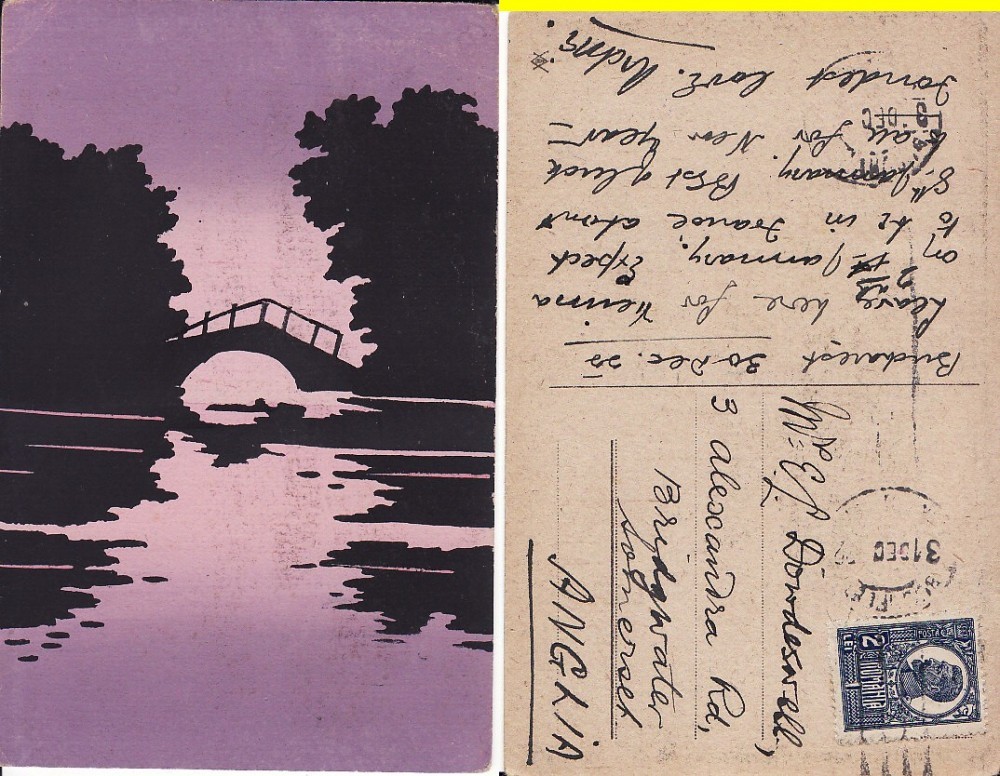 Bucharest 30 Dec. 25
Leave here for Vienna
on January. Expect
to be in France about
8th January. Best of luck
to all for New Year –
Fondest love.
DEC
Mrs Dowdeswell,
3 alexandra Rd,
Bridgwater
Somerset
ANGLIA
31 DEC
POSTA
ROMANIA
2 LEI